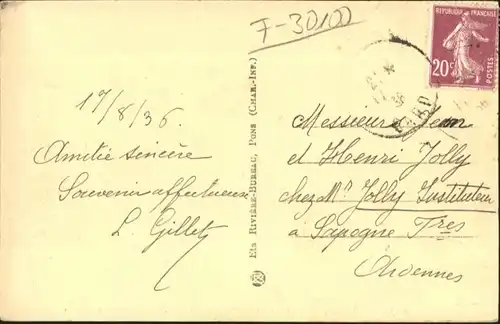 7-30100
RÉPUBLIQUE FRANÇAISE
20c
POSTES
17/8/36
Amitié sincère
Souvenir affectueux
L. Gillet
Ets RIVIÈRE-BUREAU, PONS (CHAR.-INF.)
Messieurs Jean
et Henri Jolly
chez Mr Jolly Instituteur
à Sapogne Fres
Ardennes